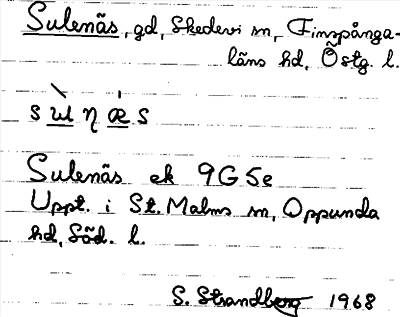 Sulenäs, gd, Skedevi sn, Finspånga-
läns hd, Östg. l.
s ù̲l̲ η ǽ̲ s
Sulenäs ek 9G5e
Uppt. i St. Malms sn, Oppunda
hd, Söd. l.
S. Strandberg 1968